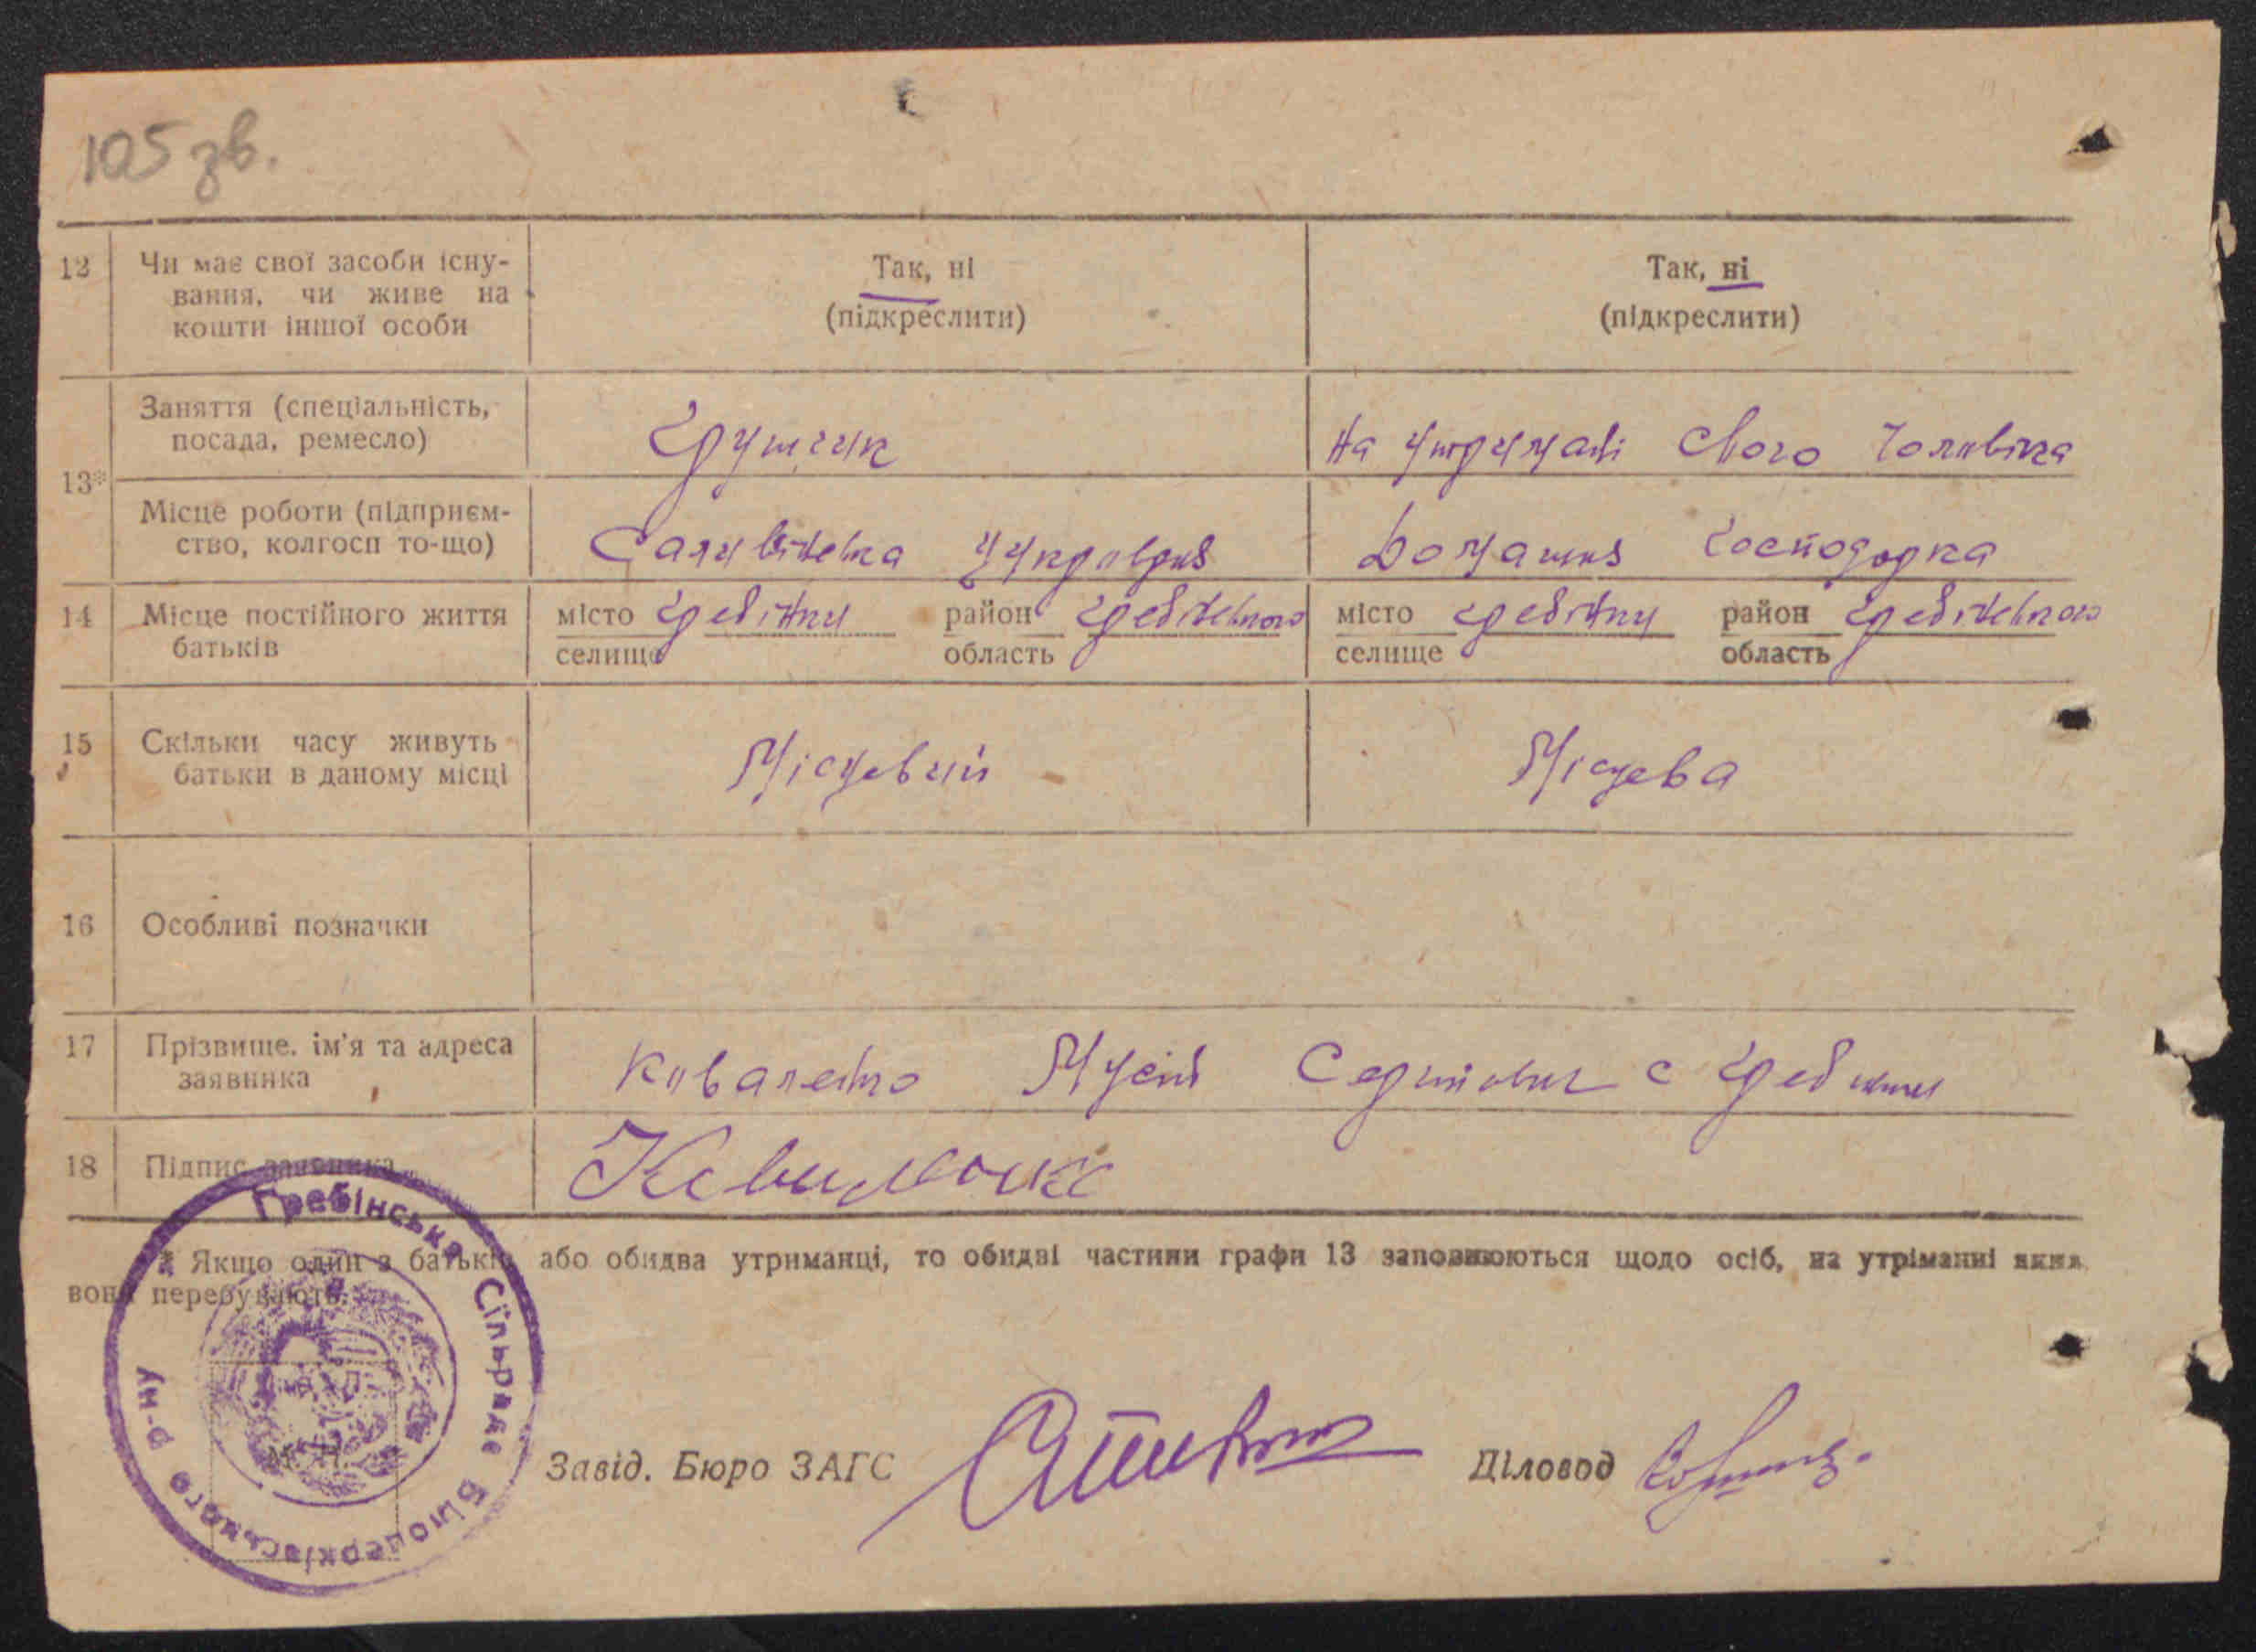 105 зв.
12 Чи має свої засоби існу- Так, ні Так, ні
вання, чи живе на (підкреслити) (підкреслити)
кошти іншої особи
Заняття (спеціальність, Грущик На утрумані свого чоловіка
посада, ремесло)
13*
Місце роботи (підприєм- Саливінська Цукроврня Домашня господорка
ство, колгосп то-що)
14 Місце постійного життя місто Гребінки район Гребіненського місто Гребінки район Гребінського
батьків селище область селище область
15 Скільки часу живуть Місцевий Місцева
батьки в даному місці
16 Особливі позначки
17 Прізвище, ім'я та адреса Коваленко Мусій Сергийович с Гребинки
заявника
18 Підпис заявника
* Якщо один з батьків або обидва утриманці, то обидві частини графи 13 заповнюються щодо осіб, на утріманні яких
вони перебувають.
Гребінська Сільрада Білоцерківського р-ну
М. П.
Завід. Бюро ЗАГС Діловод